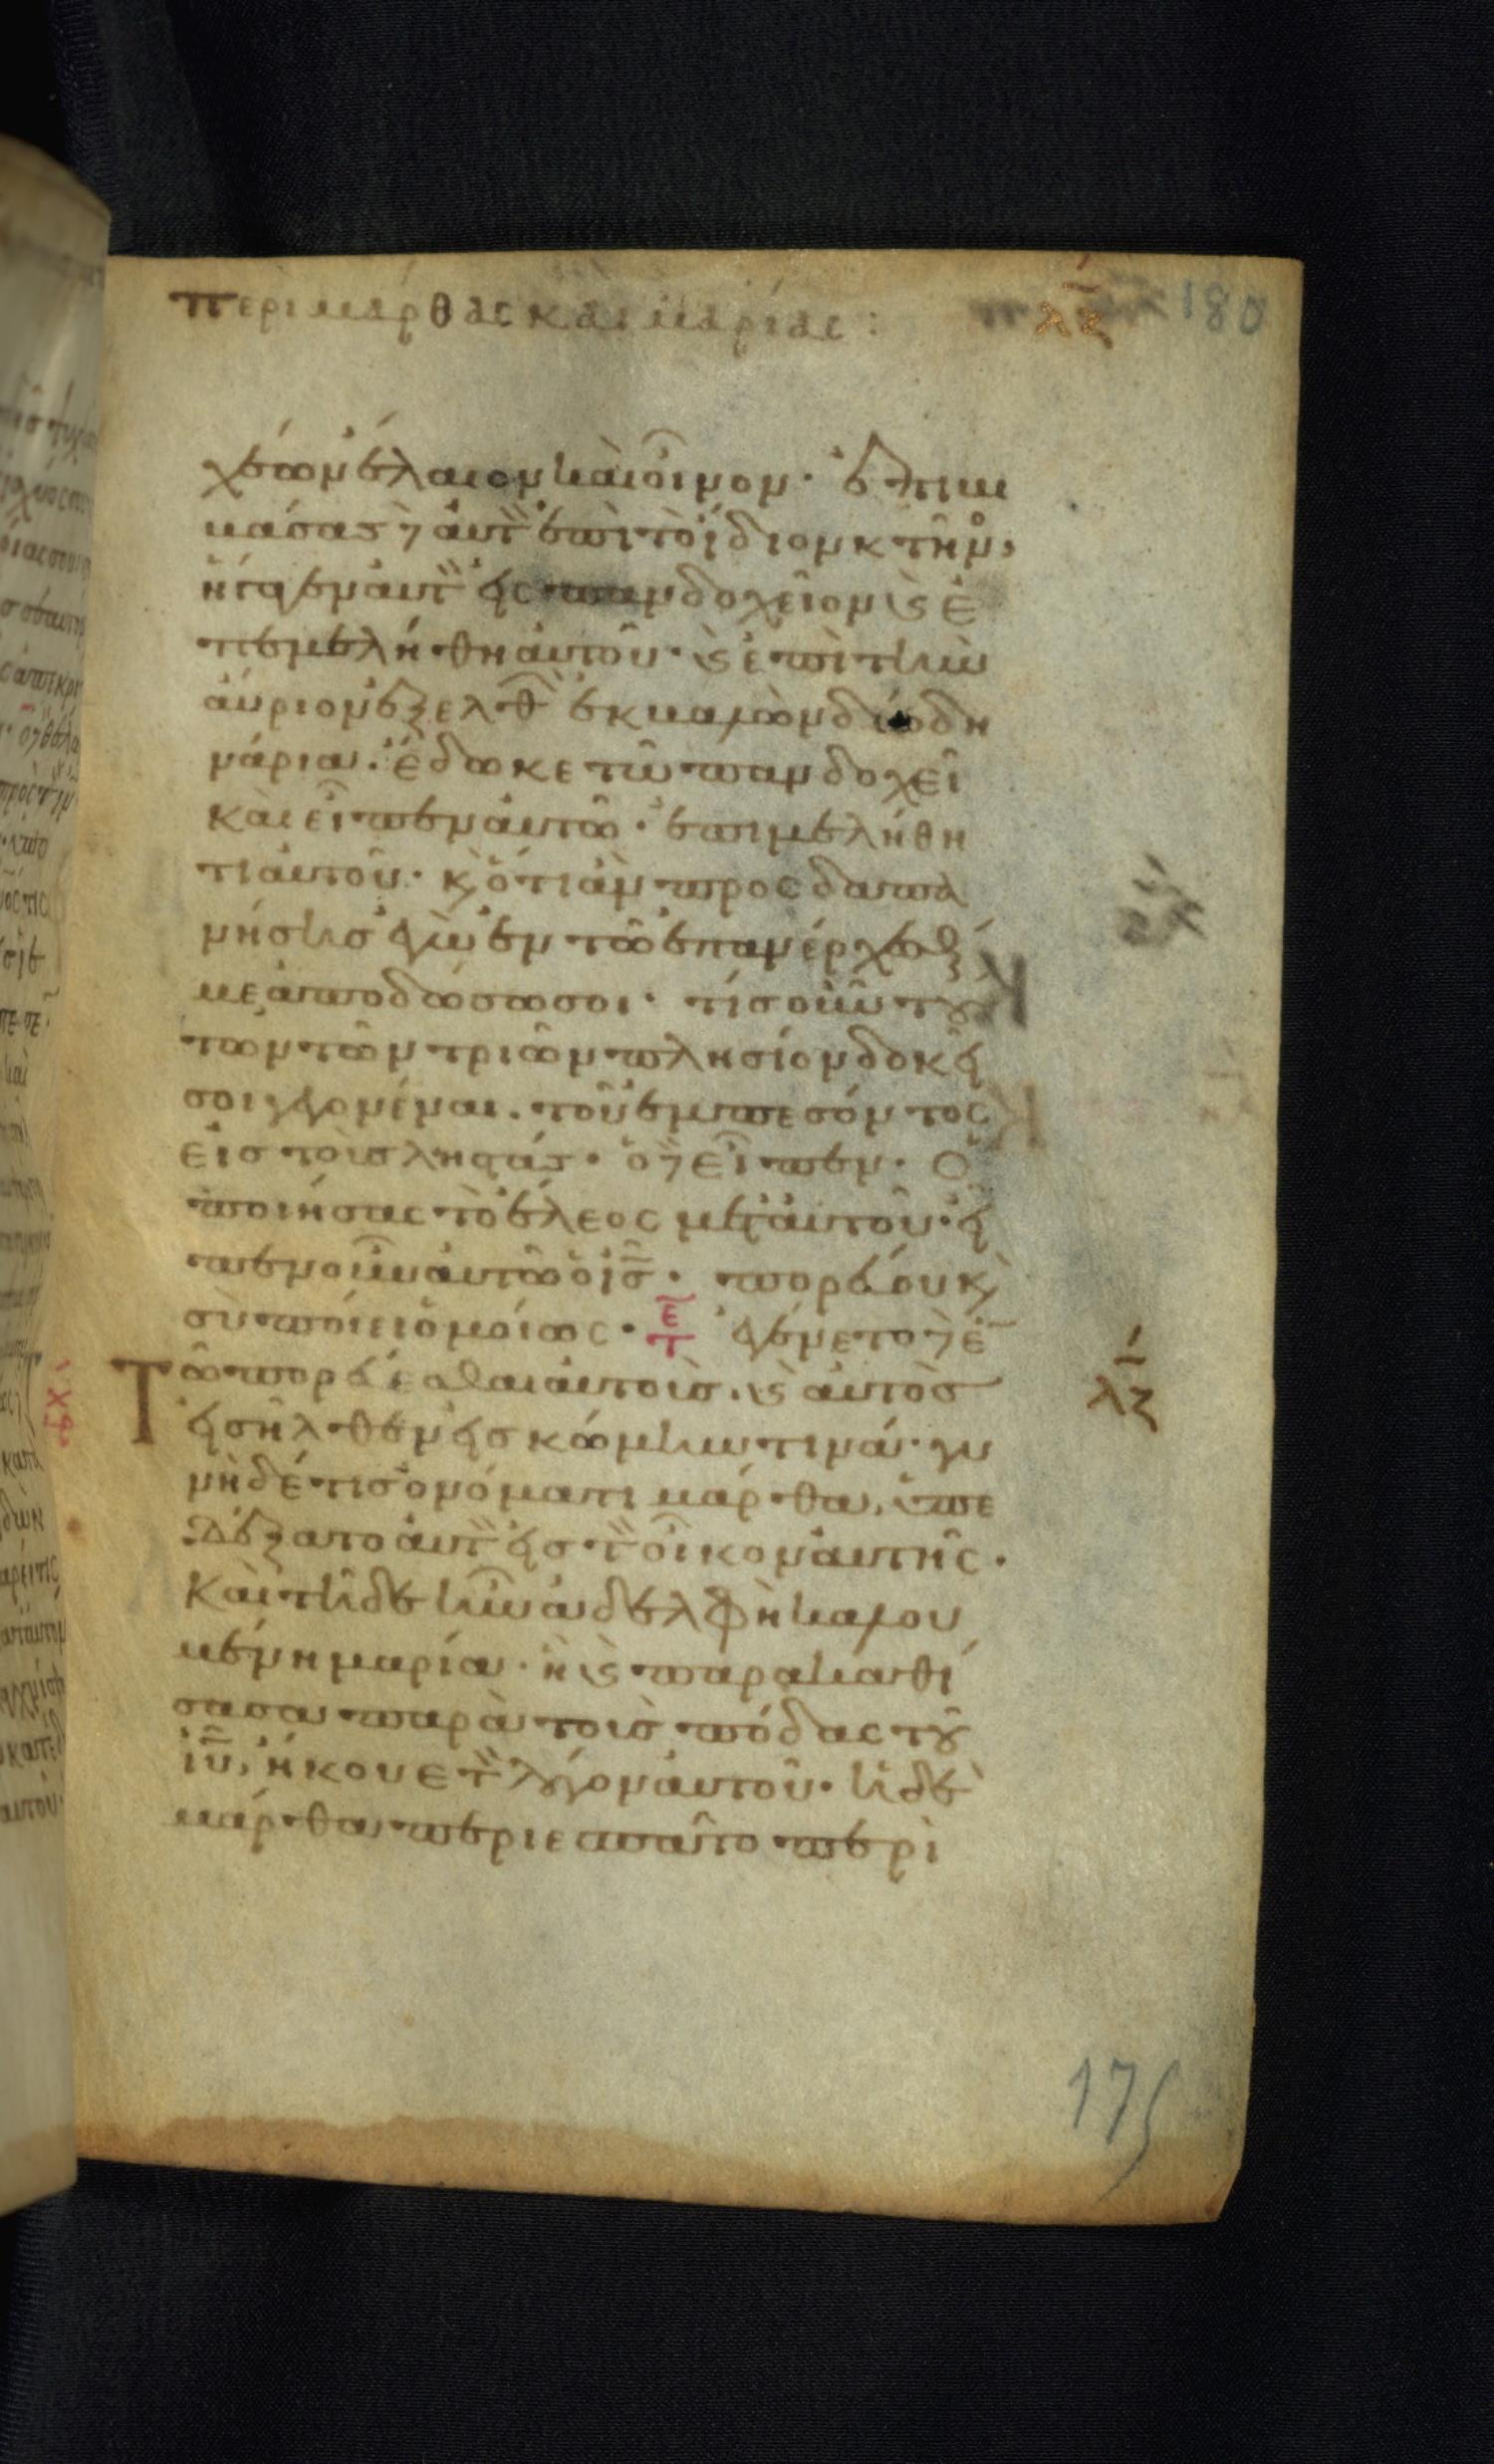 περὶ μάρθας καὶ μαρίας: λζ 180
χέων ἔλαιον καὶ οἶνον· ἐπιβι
βάσας δὲ αὐτ ἐπὶ τὸ ἴδιον κτῆν,
ἤγαγεν αὐτ εἰς πανδοχεῖον καὶ ἐ
πεμελήθη αὐτοῦ· καὶ ἐπὶ τὴν
αὔριον ἐξελθ ἐκβαλὼν δύο δη
νάρια. ἔδωκε τῶ πανδοχεῖ
καὶ εἶπεν αὐτῶ· ἐπιμελήθη
τι αὐτοῦ· κ ὅτι ἂν προςδαπα
νήσης ἐγὼ ἐν τῶ ἐπανέρχεσθ
με ἀποδώσω σοι· τίς οὖν τού
των τῶν τριῶν πλησίον δοκεῖ
σοι γεγονέναι. τοῦ ἐμπεσόντος
εἰς τοὺς ληστάς· ὁ δὲ εἶπεν· Ὁ
ποιήσας τὸ ἔλεος μετ αὐτοῦ· εἶ
πεν οὖν αὐτῶ ὁ ις· πορεύου κ
σὺ ποίει ὁμοίως· ε τ ἐγένετο δὲ ἐ
Τῶ πορεύεσθαι αὐτοὺς. καὶ αὐτὸς
εἰσῆλθεν εἰς κώμην τινά· γυ
νὴ δέ τις ὀνόματι μάρθα, ὑπε
δέξατο αὐτ εἰς τ οἶκον αὐτῆς.
Καὶ τῆδε ἦν ἀδελφὴ καλου
μένη μαρία· ἣ καὶ παρακαθί
σασα παρὰ τοὺς πόδας τοῦ
ιυ, ἤκουε τ λόγον αὐτοῦ· ἡ δὲ
μάρθα περιεσπᾶτο περὶ
λζ
175